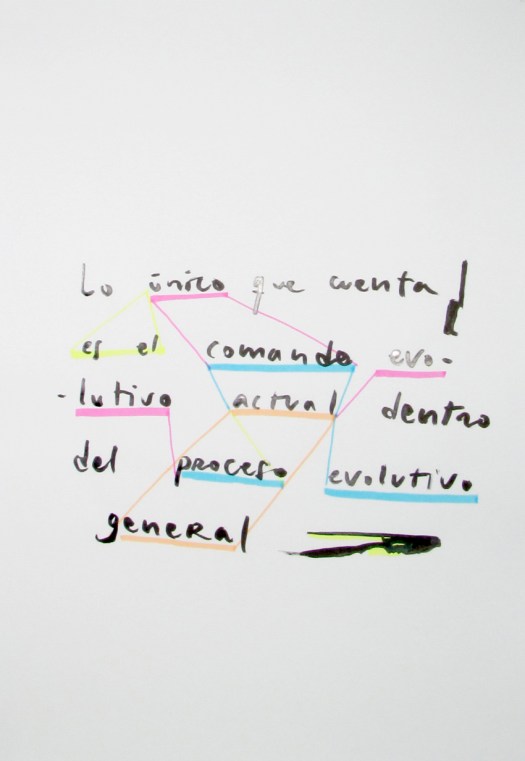 Lo único que cuenta
es el comando evo-
-lutivo actual dentro
del proceso evolutivo
general